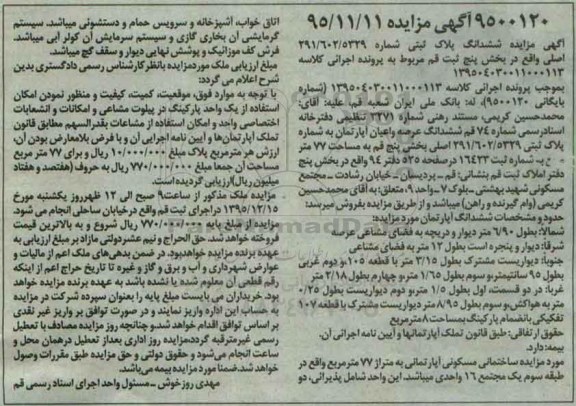 ۹۵۰۰۱۲۰ آگهی مزایده ۹۵/۱۱/۱۱
آگهی مزایده ششدانگ پلاک ثبتی شماره ۲۹۱/۶۰۲/۵۳۲۹
اصلی واقع در بخش پنج ثبت قم مربوط به پرونده اجرائی کلاسه
۱۳۹۵۰۴۰۳۰۰۱۱۰۰۰۱۱۳
بموجب پرونده اجرائی کلاسه ۱۳۹۵۰۴۰۳۰۰۱۱۰۰۰۱۱۳ (شماره
بایگانی ۹۵۰۰۱۲۰)، له: بانک ملی ایران شعبه قم، علیه: آقای:
محمدحسین کریمی، مستند رهنی شماره ۳۲۷۱ تنظیمی دفترخانه
اسناد رسمی شماره ۷۴ قم ششدانگ عرصه واعیان آپارتمان به شماره
پلاک ثبتی ۲۹۱/۶۰۲/۵۳۲۹ اصلی بخش پنج قم به مساحت ۷۷ متر
به شماره ثبت ۱۶۴۳۳ صفحه ۵۲۵ دفتر ۹۴ واقع در بخش پنج
دفتر املاک ثبت قم بنشانی: قم – پردیسان – خیابان رشادت – مجتمع
مسکونی شهید بهشتی – بلوک ۷ – واحد ۹، متعلق: به آقای محمدحسین
کریمی (وام گیرنده و راهن) میباشد و از طریق مزایده بفروش میرسد:
حدود و مشخصات ششدانگ آپارتمان مورد مزایده:
شمالا: بطول ۶/۹۰ متر دیوار و دریچه به فضای مشاعی عرصه
شرقا: دیوار و پنجره است بطول ۱۲ متر به فضای مشاعی
جنوبا: دیواریست مشترک بطول ۳/۱۵ متر با قطعه ۱۰۵، و دوم غربی
بطول ۹۵ سانتیمتر، و سوم بطول ۱/۶۵ متر، و چهارم بطول ۲/۱۸ متر
غربا: در دو قسمت، اول بطول ۱/۵ متر، و دوم دیواریست بطول ۰/۲۵
متر به هواکش، و سوم بطول ۸/۹۵ متر دیواریست مشترک با قطعه ۱۰۷
تفکیکی بانضمام پارکینگ بمساحت ۸ مترمربع
حقوق ارتفاقی: طبق قانون تملک آپارتمانها و آیین نامه اجرائی آن.
بیمه: دارد.
مورد مزایده ساختمانی مسکونی آپارتمانی به متراژ ۷۷ مترمربع واقع در
طبقه سوم یک مجتمع ۱۶ واحدی میباشد. این واحد شامل پذیرائی، دو
اتاق خواب، آشپزخانه و سرویس حمام و دستشوئی میباشد. سیستم
گرمایشی آن بخاری گازی و سیستم سرمایش آن کولر آبی میباشد.
فرش کف موزائیک و پوشش نهایی دیوار و سقف گچ میباشد.
مبلغ ارزیابی ملک مورد مزایده بانظر کارشناس رسمی دادگستری بدین
شرح اعلام می گردد:
با توجه به موارد فوق، موقعیت، کمیت، کیفیت و منظور نمودن امکان
استفاده از یک واحد پارکینگ در پیلوت مشاعی و امکانات و انشعابات
اختصاصی واحد و امکان استفاده از مشاعات بقدرالسهم مطابق قانون
تملک آپارتمان‌ها و آیین نامه اجرایی آن و با فرض بلامعارض بودن آن،
ارزش هر مترمربع پلاک مبلغ ۱۰/۰۰۰/۰۰۰ ریال و برای ۷۷ متر مربع
مساحت آن جمعا مبلغ ۷۷۰/۰۰۰/۰۰۰ ریال به حروف (هفتصد و هفتاد
میلیون ریال) ارزیابی گردیده است.
مزایده ملک مذکور از ساعت ۹ صبح الی ۱۲ ظهر روز یکشنبه مورخ
۱۳۹۵/۱۲/۱۵ در اجرای ثبت قم واقع در خیابان ساحلی انجام می شود.
مزایده از مبلغ پایه ۷۷۰/۰۰۰/۰۰۰ ریال شروع و به بالاترین قیمت
فروخته خواهد شد. حق الحراج و نیم عشر دولتی مازاد بر مبلغ ارزیابی به
عهده برنده مزایده خواهد بود. در ضمن بدهی‌های ملک اعم از مالیات و
عوارض شهرداری و آب و برق و گاز و غیره تا تاریخ حراج اعم از اینکه
رقم قطعی آن معلوم شده یا نشده باشد به عهده برنده مزایده خواهد
بود. خریداران می بایست مبلغ پایه را بعنوان سپرده شرکت در مزایده
به حساب این اداره واریز نمایند و در صورت توافق بر واریز غیر نقدی
بر اساس توافق اقدام خواهد شد. و چنانچه روز مزایده مصادف با تعطیل
رسمی غیر مترقبه گردد، مزایده روز اداری بعد از تعطیل در همان محل و
ساعت انجام می‌شود و حقوق دولتی و حق مزایده طبق مقررات وصول
خواهد شد. ضمنا مورد مزایده بیمه می‌باشد.
مهدی روزخوش – مسئول واحد اجرای اسناد رسمی قم